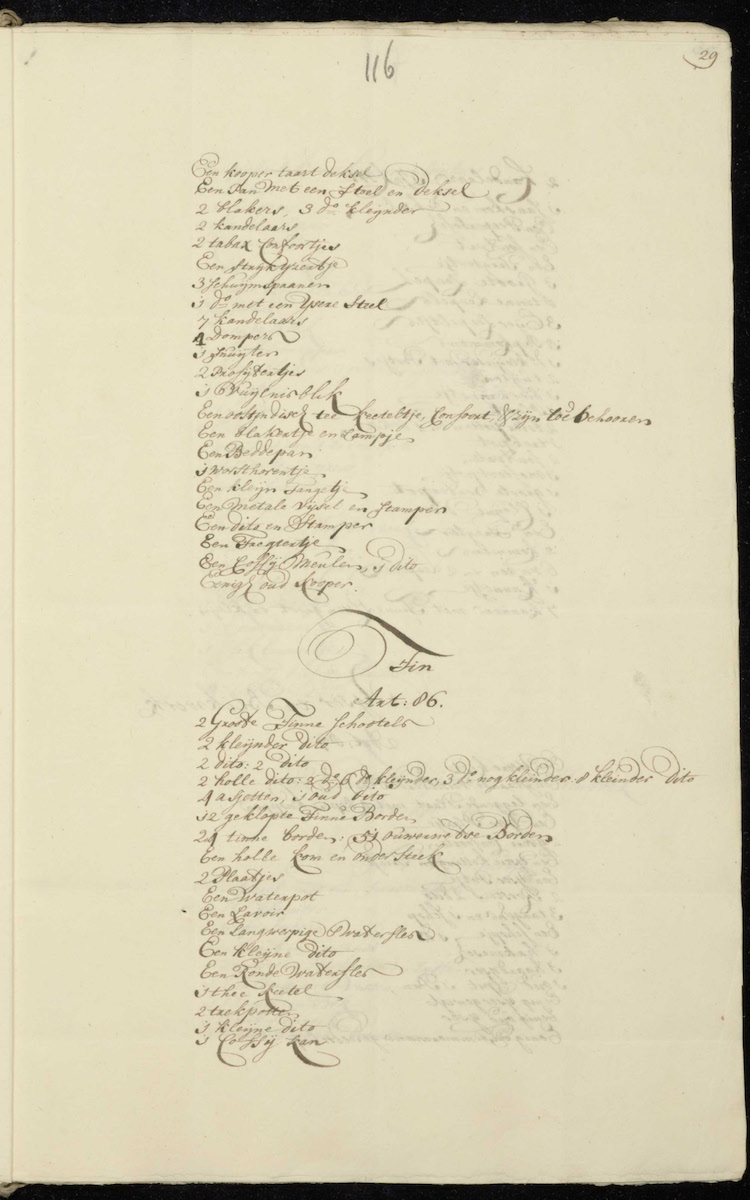 116
29
Een kooper taart deksel
Een Pan Met een steel en deksel
2 blakers, 3 do kleijnder
2 kandelaars
2 tabax Confoortjes
Een strijkijzertje
3 Schuijmspaanen
1 do met een Ysere Steel
7 kandelaars
4 Dompers
1 snuijter
2 profijtertjes
1 Vuijlnis blik
Een oostindisch tee keeteltje, Confoort, & zijn toe behooren
Een blakertje en Lampje
Een Beddepan
1 worsthorentje
Een kleijn Tangetje
Een Metale Vijsel en stamper
Een dito en Stamper
Een Tregtertje
Een Coffij Meulen, 1 dito
Eenigh oud kooper.
Tin
Art: 86.
2 Groote Tinne schootels
2 kleijnder dito
2 dito: 2 dito
2 holle dito: 2 do 6 do kleijnder, 3 do nog kleinder 8 kleinder dito
4 asjetten, 1 oud dito
12 geklopte Tinne Borden
24 tinne borden: 51 ouwerwetse Borden
Een holle kom en ondersteek
2 Plaatjes
Een Waterpot
Een Lavoir
Een Langwerpige Waterfles
Een kleijne dito
Een Ronde Waterfles
1 thee keetel
2 trekpotte
1 kleijne dito
1 Coffij kan